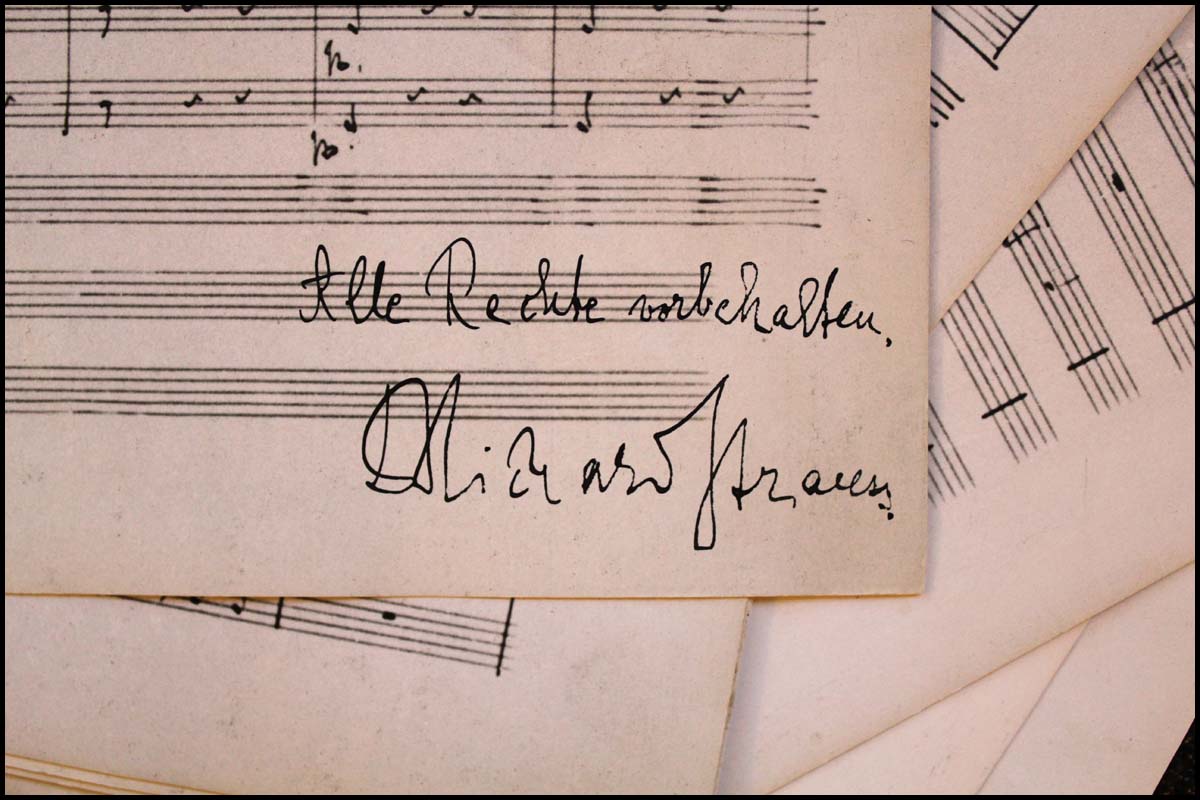 p.
p.
Alle Rechte vorbehalten.
Richard Strauss.